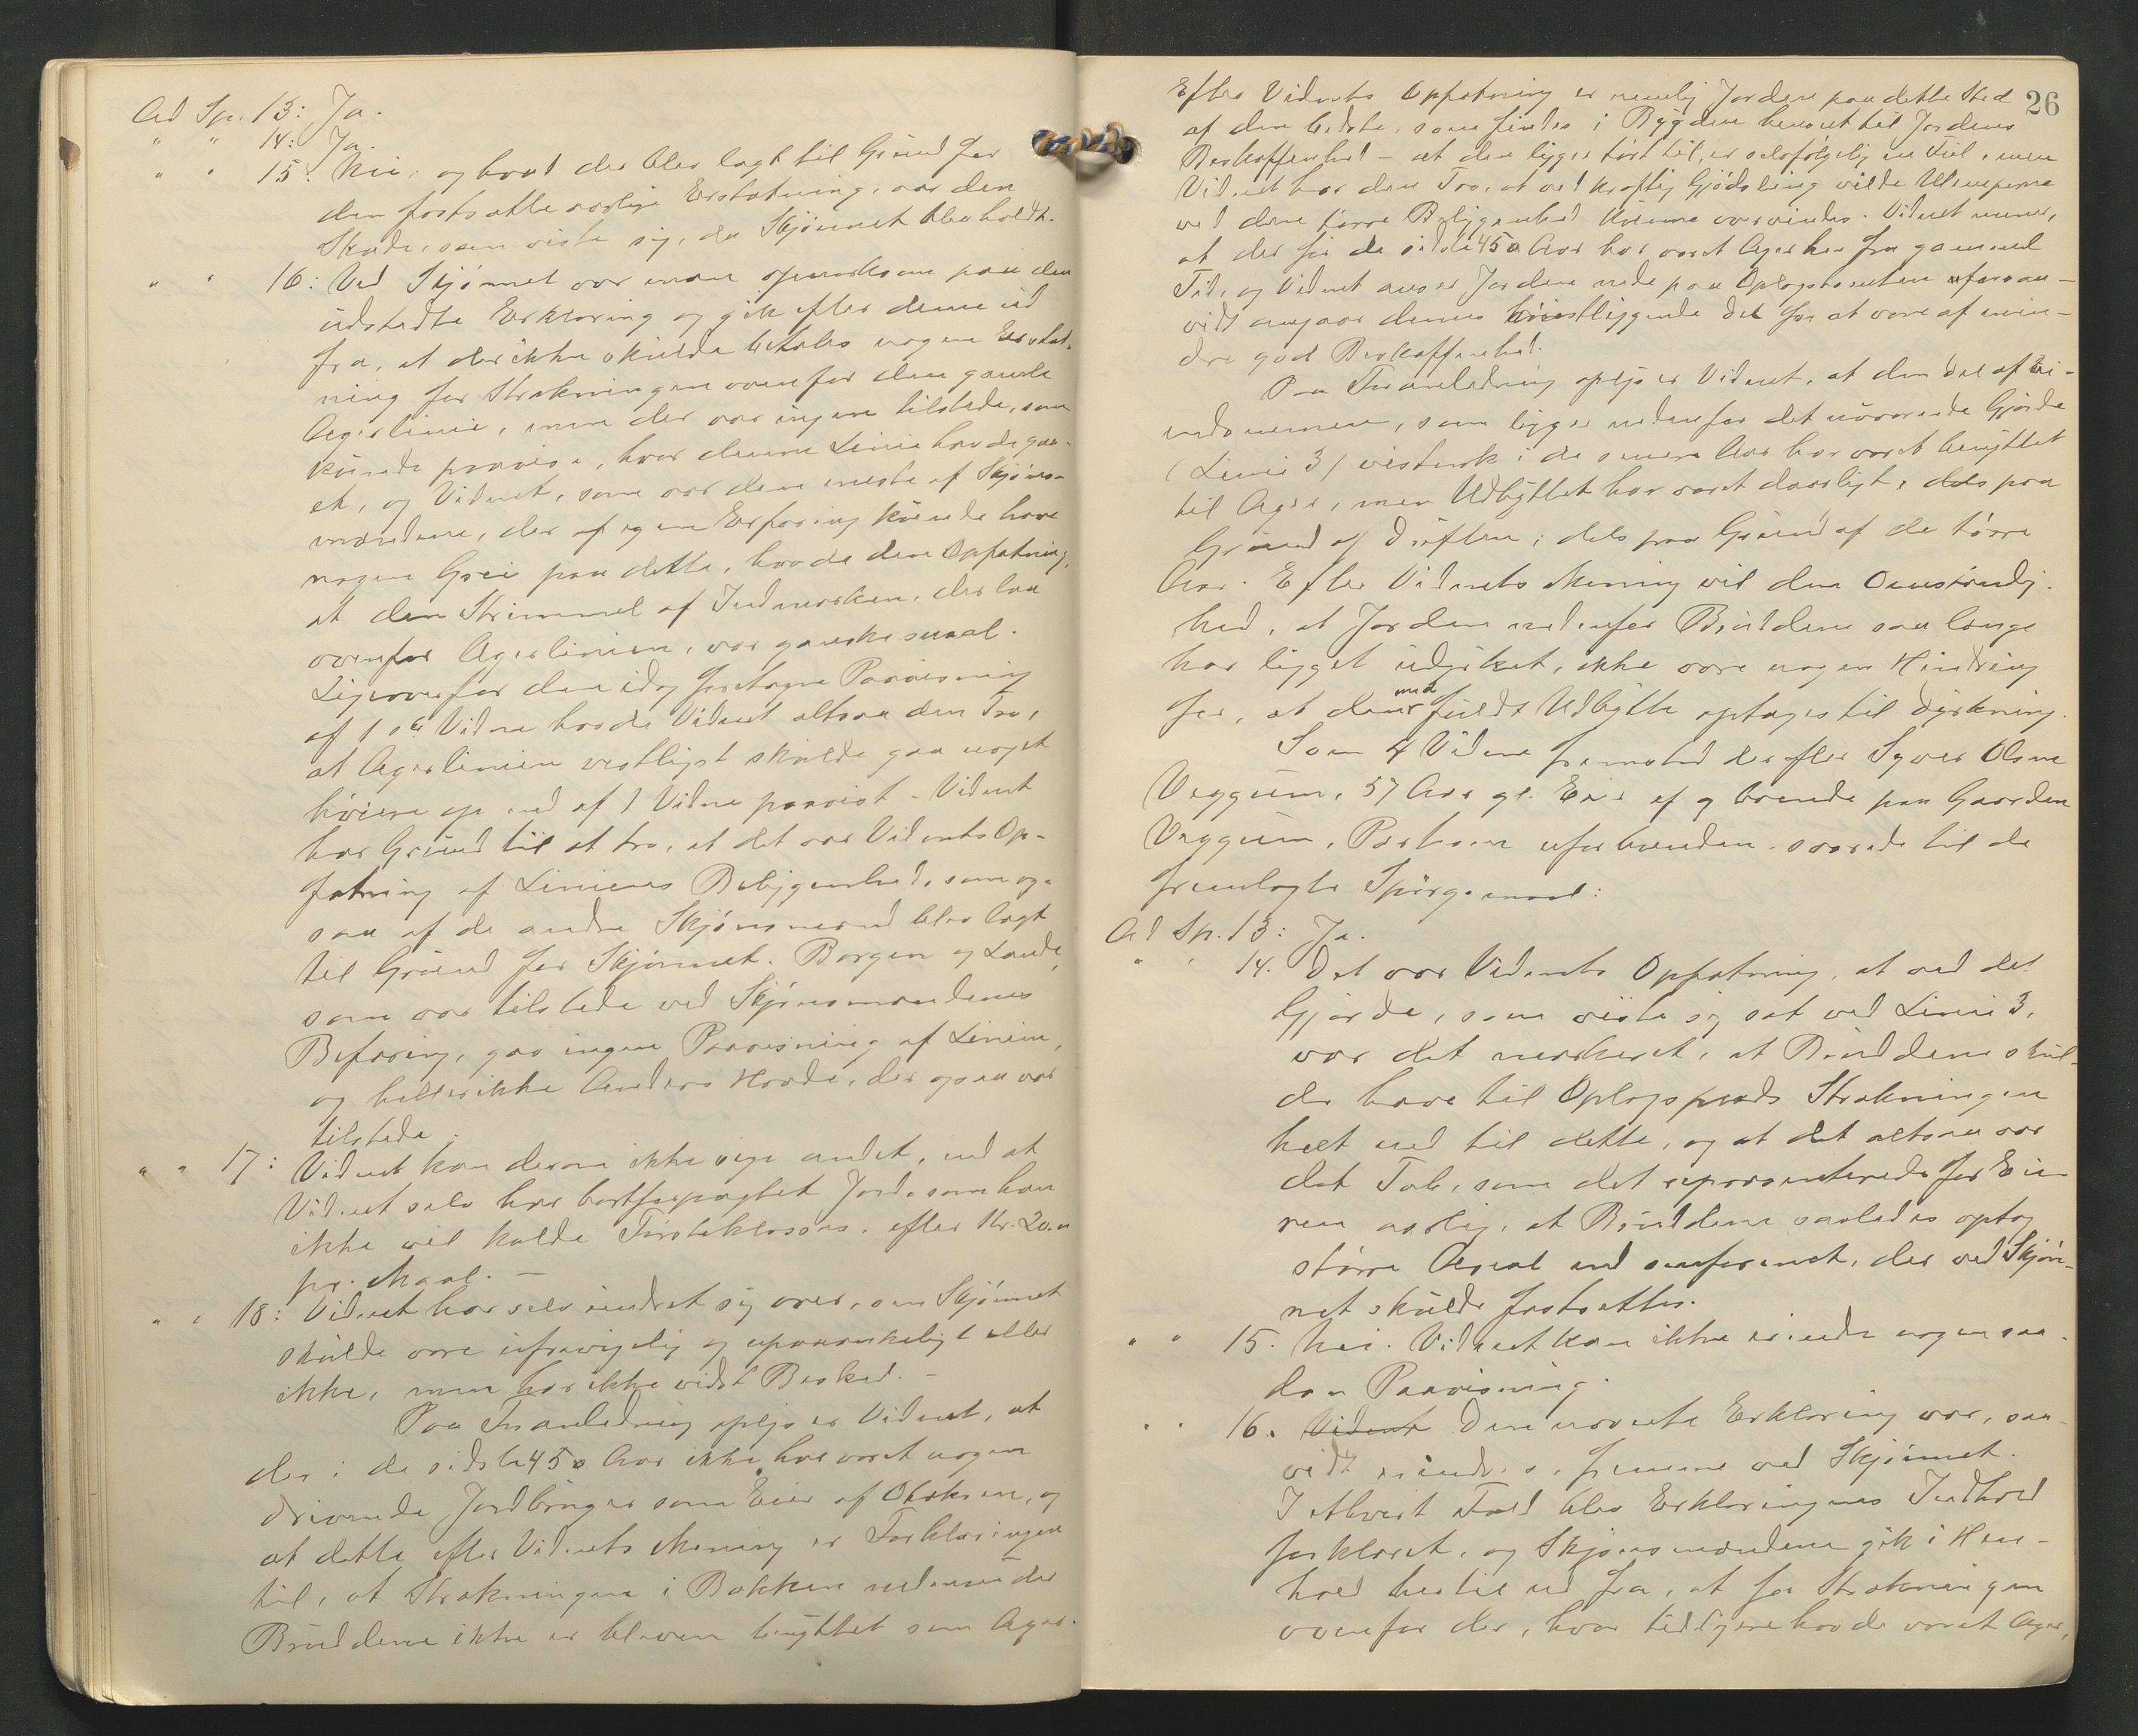 Ad Sp. 13: Ja.
" " 14: Ja.
" " 15: Nei; og hvad der blev lagt til Grund for
den fastsatte aarlige Erstatning, var den
Skade, som viste sig, da Skjønnet blev holdt.
" " 16: Ved Skjønnet var man opmerksom paa den
udstedte Erklæring og gik efter denne ud
fra, at der ikke skulde betales nogen Erstat-
ning for Strækningen ovenfor den gamle
Agerlinie, men der var ingen tilstede, som
kunde paavise, hvor denne Linie havde gaa-
et, og Vidnet, som var den eneste af Skjøns-
mændene, der af egen Erfaring kunde have
nogen Greie paa dette, havde den Opfatning,
at den Strimmel af Indmarken, der laa
ovenfor Agerlinien, var ganske smal.
Ligeoverfor den idag foretagne Paavisning
af 1ste Vidne havde Vidnet altsaa den Tro,
at Agerlinien vestligst skulde gaa noget
høiere op end af 1 Vidne paavist. Vidnet
har Grund til at tro, at det var Vidnets Op-
fatning af Liniens Beliggenhed, som og-
saa af de andre Skjønsmænd blev lagt
til Grund for Skjønnet. Borgen og Lande,
som var tilstede ved Skjønsmændenes
Befaring, gav ingen Paavisning af Linien,
og heller ikke Anders Horde, der ogsaa var
tilstede.
" " 17: Vidnet kan derom ikke sige andet, end at
Vidnet selv har bortforpagtet Jord, som han
ikke vil kalde Førsteklasses, efter Kr. 20.00
pr. Maal. —
" " 18: Vidnet har selv undret sig over, om Skjønnet
skulde være ufravigelig og upaaankeligt eller
ikke, men har ikke vidst Besked. —
Paa Foranledning oplyser Vidnet, at
der i de sidste 450 Aar ikke har været nogen
drivende Jordbruger som Eier af, og
at dette efter Vidnets Mening er Forklaringen
til, at Strækningen i Bakken nedenunder
Bruddene ikke er bleven benyttet som Ager.
26
Efter Vidnets Opfatning er nemlig Jorden paa dette Sted
af den bedste, som findes i Bygden henseet til Jordens
Beskaffenhed – at den ligger tørt til, er selvfølgelig en Feil, men
Vidnet har den Tro, at ved kraftig Gjødsling vilde Ulemperne
ved den tørre Beliggenhed kunne overvindes. Vidnet mener,
at der før de sidste 450 Aar har været Ager her fra gammel
Tid, og Vidnet anser Jorden nede paa Oplagstomten, forsaa-
vidt angaar dennes høiestliggende Del for at være af min-
dre god Beskaffenhed.
Paa Foranledning oplyser Vidnet, at den Del af Ei-
endommen, som ligger nedenfor det nuværende Gjærde
(Linie 3) vistnok i de senere Aar har været benyttet
til Ager, men Udbyttet har været daarligt, dels paa
Grund af Driften, dels paa Grund af de tørre
Aar. Efter Vidnets Mening vil den Omstændig-
hed, at Jorden nedenfor Bruddene saa længe
har ligget udyrket, ikke være nogen Hindring
for, at den med fuldt Udbytte optages til Dyrkning.
Som 4 Vidne fremstod derefter Syver Olsen
Veggum, 57 Aar gl. Eier af og boende paa Gaarden
Veggum, Parterne uforbunden, svarede til de
fremlagte Spørgsmaal:
Ad Sp. 13: Ja.
" " 14. Det var Vidnets Opfatning, at ved det
Gjærde, som viste sig sat ved Linie 3,
var det markeret, at Bruddene skul-
de have til Oplagsplads Strækningen
helt ned til dette, og at det altsaa var
det Tab, som det repræsenterede for Eie-
ren aarlig, at Bruddene saaledes optog
større Areal end omforenet, der ved Skjøn-
net skulde fastsættes.
" " 15. Nei. Vidnet kan ikke erindre nogen saa-
dan Paavisning.
" " 16. Vidnet Den nævnte Erklæring var, saa-
vidt erindres, fremme ved Skjønnet.
I ethvert Fald blev Erklæringens Indhold
forklaret, og Skjønsmændene gik i Hen-
hold hertil ud fra, at for Strækningen
ovenfor der, hvor tidligere havde været Ager,